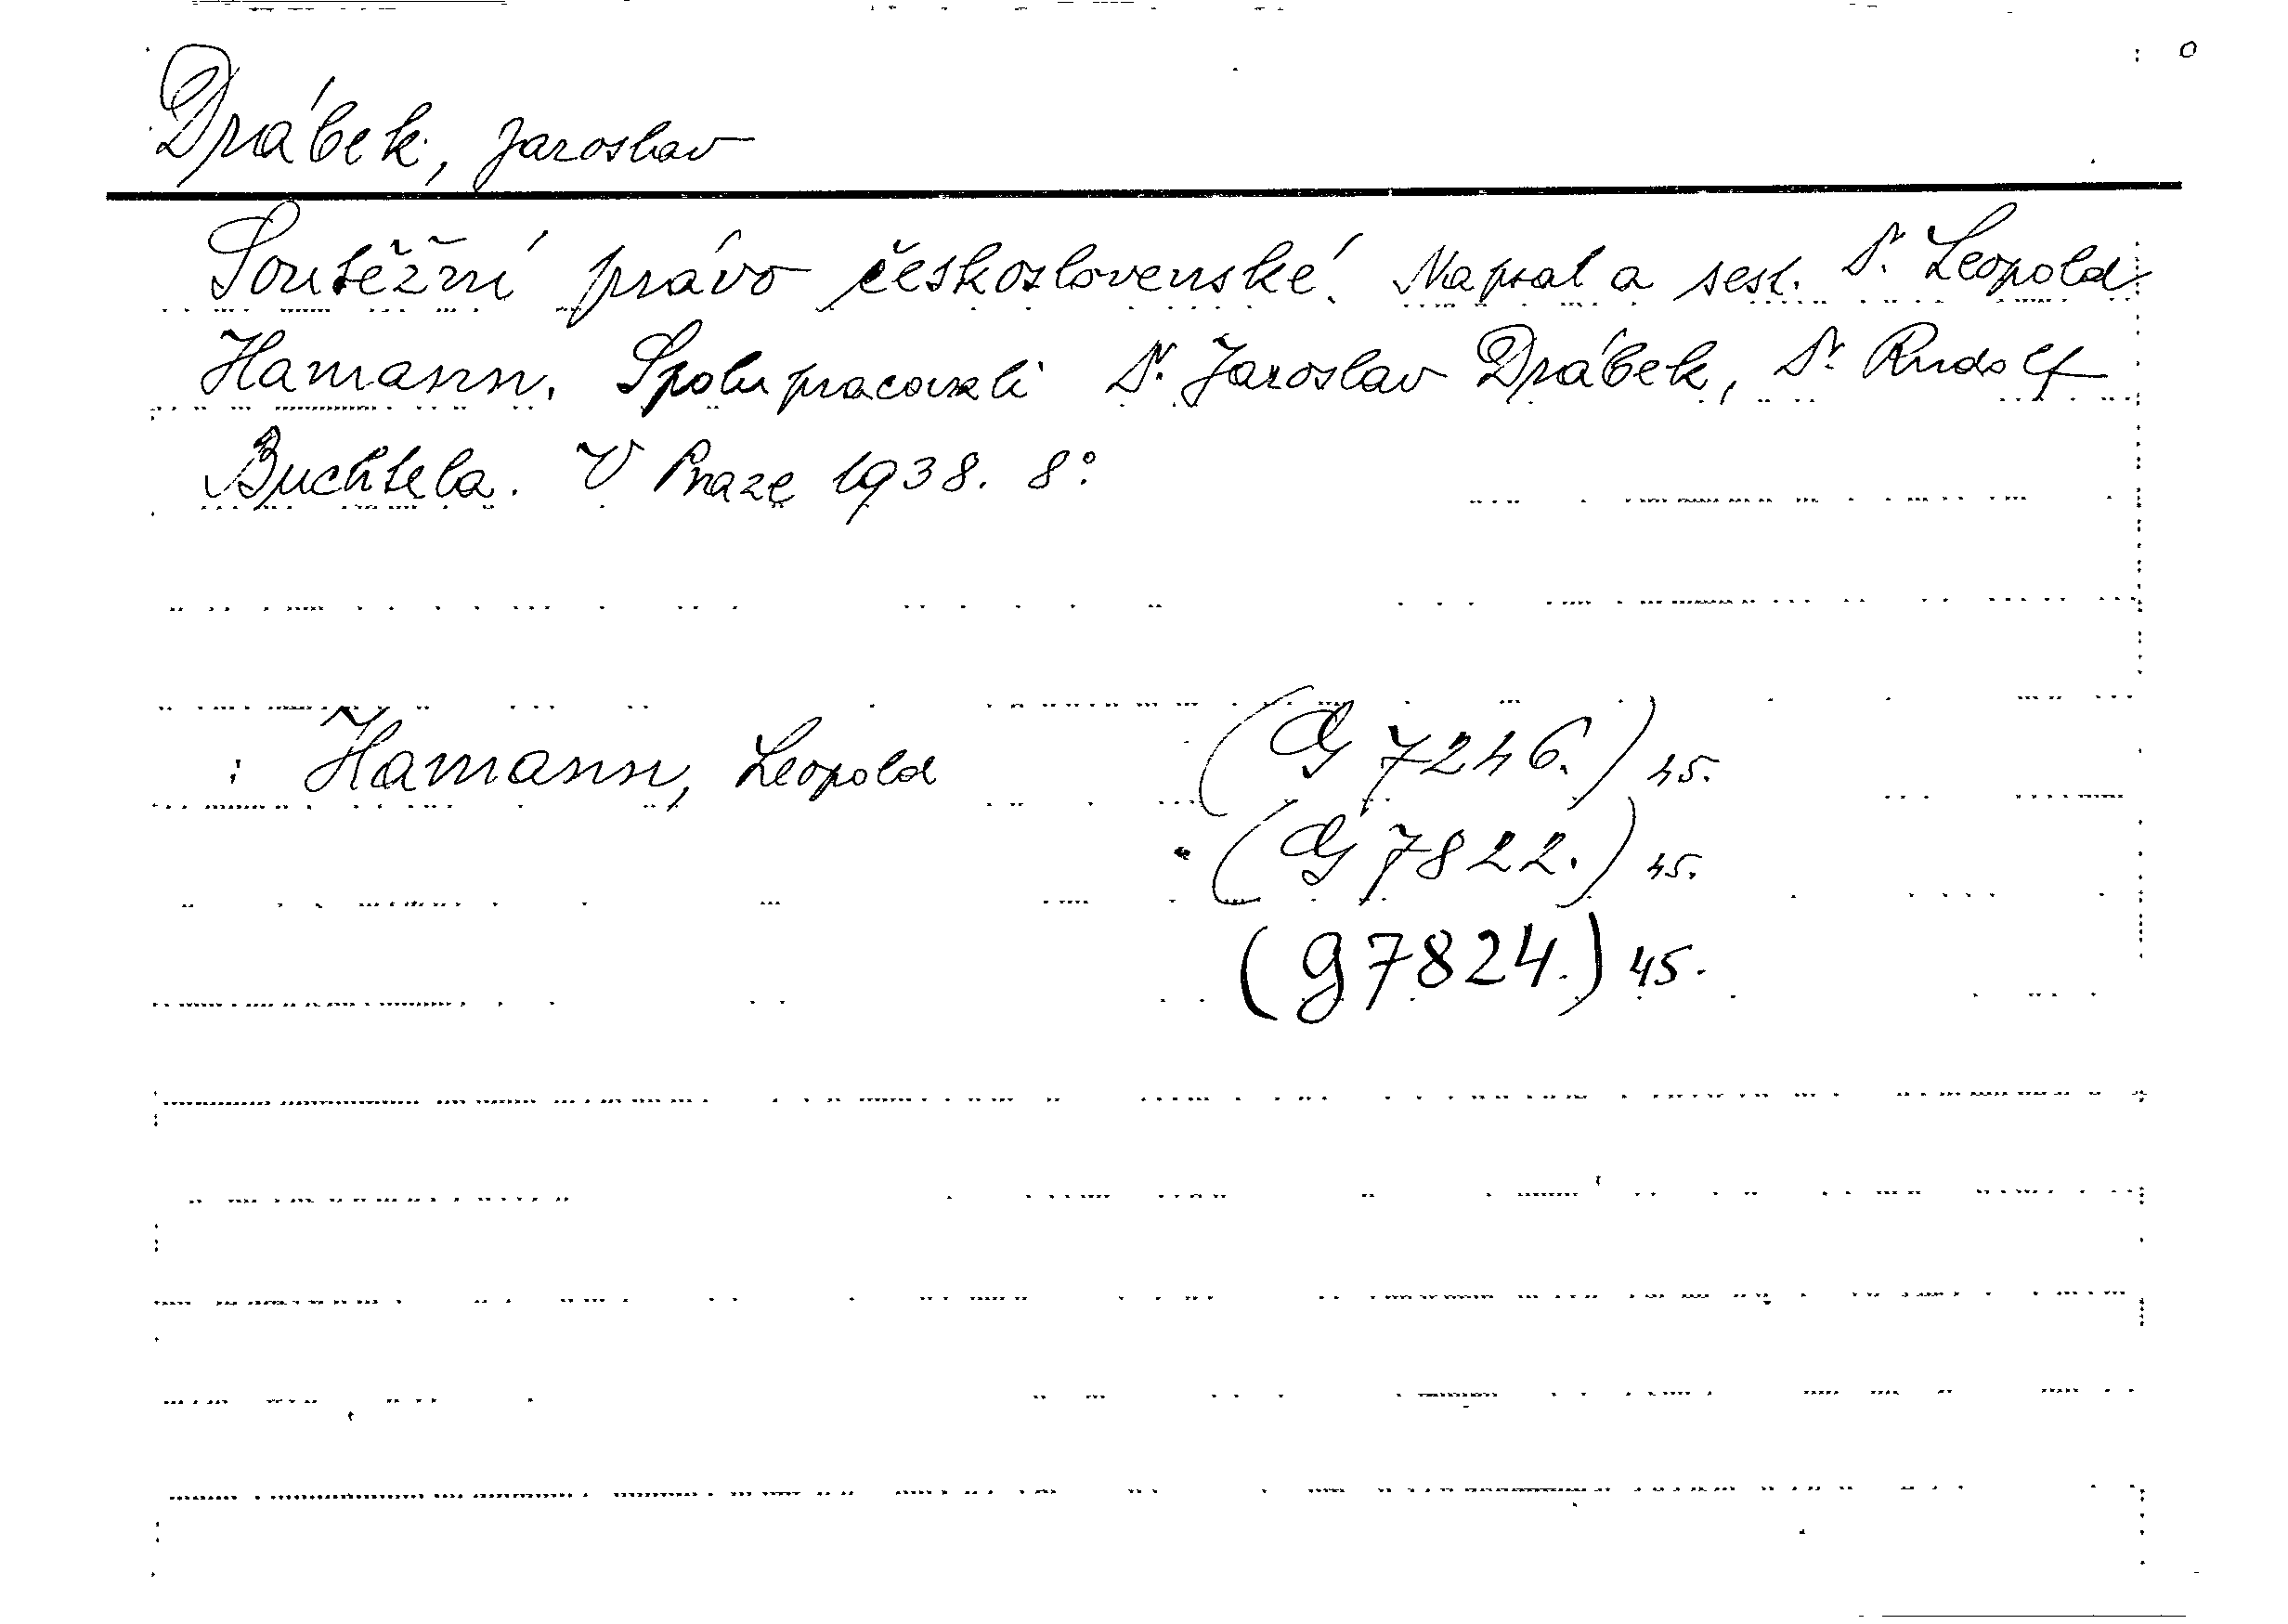 Drábek, Jaroslav
Soutěžní právo československé. Napsal a sest. Dr. Leopold
Hamann. Spolupracovali Dr. Jaroslav Drábek, Dr. Rudolf
Buchtela. V Praze 1938. 8°.
: Hamann, Leopold (G 7246.) 45.
(G 7822.) 45.
(g 7824.) 45.